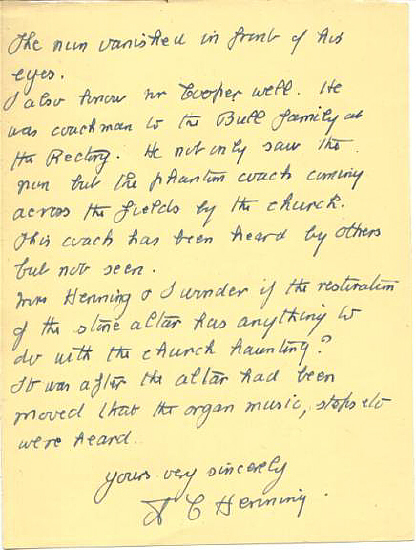 The nun vanished in front of his
eyes.
I also know Mr Cooper well. He
was coachman to the Bull family at
the Rectory. He not only saw the
nun but the phantom coach coming
across the fields by the church.
This coach has been heard by others
but not seen.
Mrs Henning & I wonder if the restoration
of the stone altar has anything to
do with the church haunting?
It was after the altar had been
moved that the organ music, steps etc
were heard.
Yours very sincerely
A C Henning.